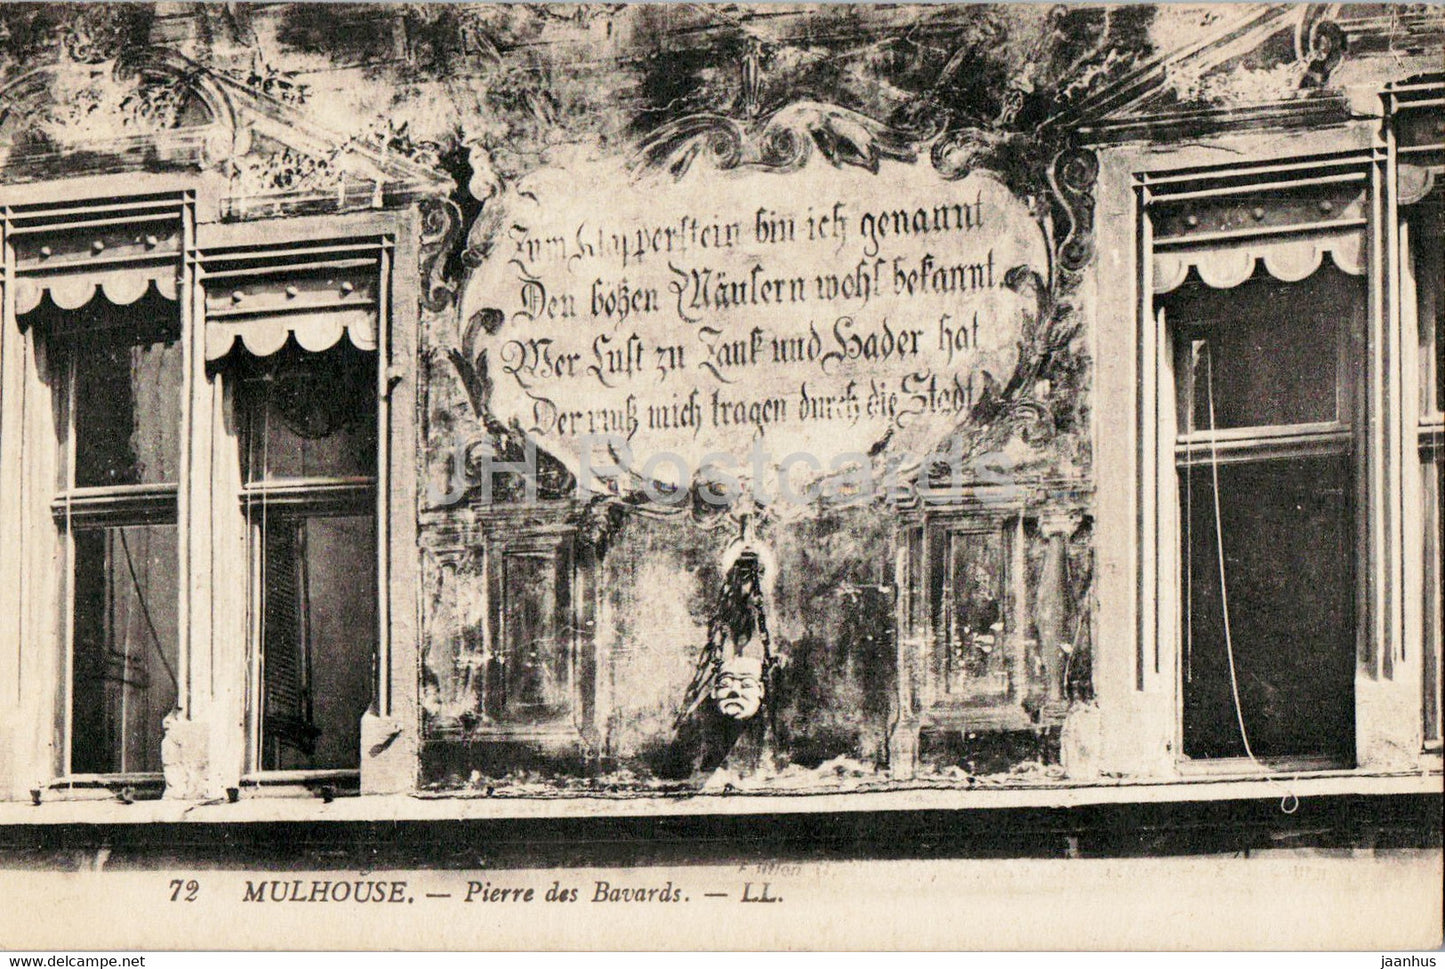 Zum Klapperstein bin ich genannt
Den bößen Mäulern wohl bekannt.
Wer Lust zu Zank und Hader hat
Der muß mich tragen durch die Stadt
JH Postcards
72 MULHOUSE. — Pierre des Bavards. — LL.
jaanhus
https://www.hippostcard.com/store/jaanhus